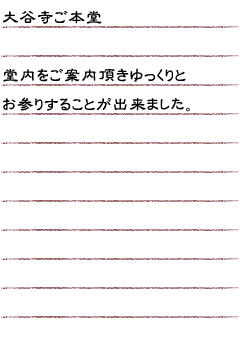 大谷寺ご本堂
堂内をご案内頂きゆっくりと
お参りすることが出来ました。